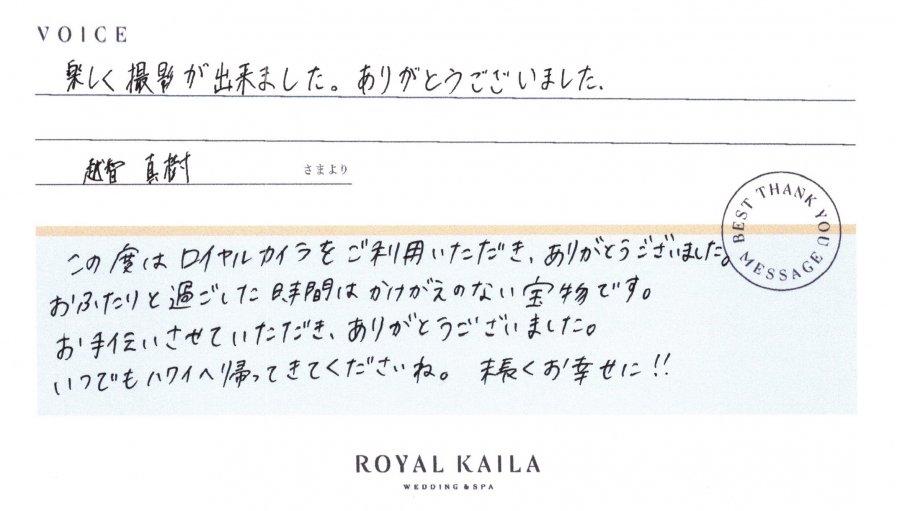 VOICE
楽しく撮影が出来ました。ありがとうございました。
越智 真樹 さまより
BEST THANK YOU MESSAGE
この度はロイヤルカイラをご利用いただき、ありがとうございました。
おふたりと過ごした時間はかけがえのない宝物です。
お手伝いさせていただき、ありがとうございました。
いつでもハワイへ帰ってきてくださいね。 末長くお幸せに!!
ROYAL KAILA
WEDDING & SPA